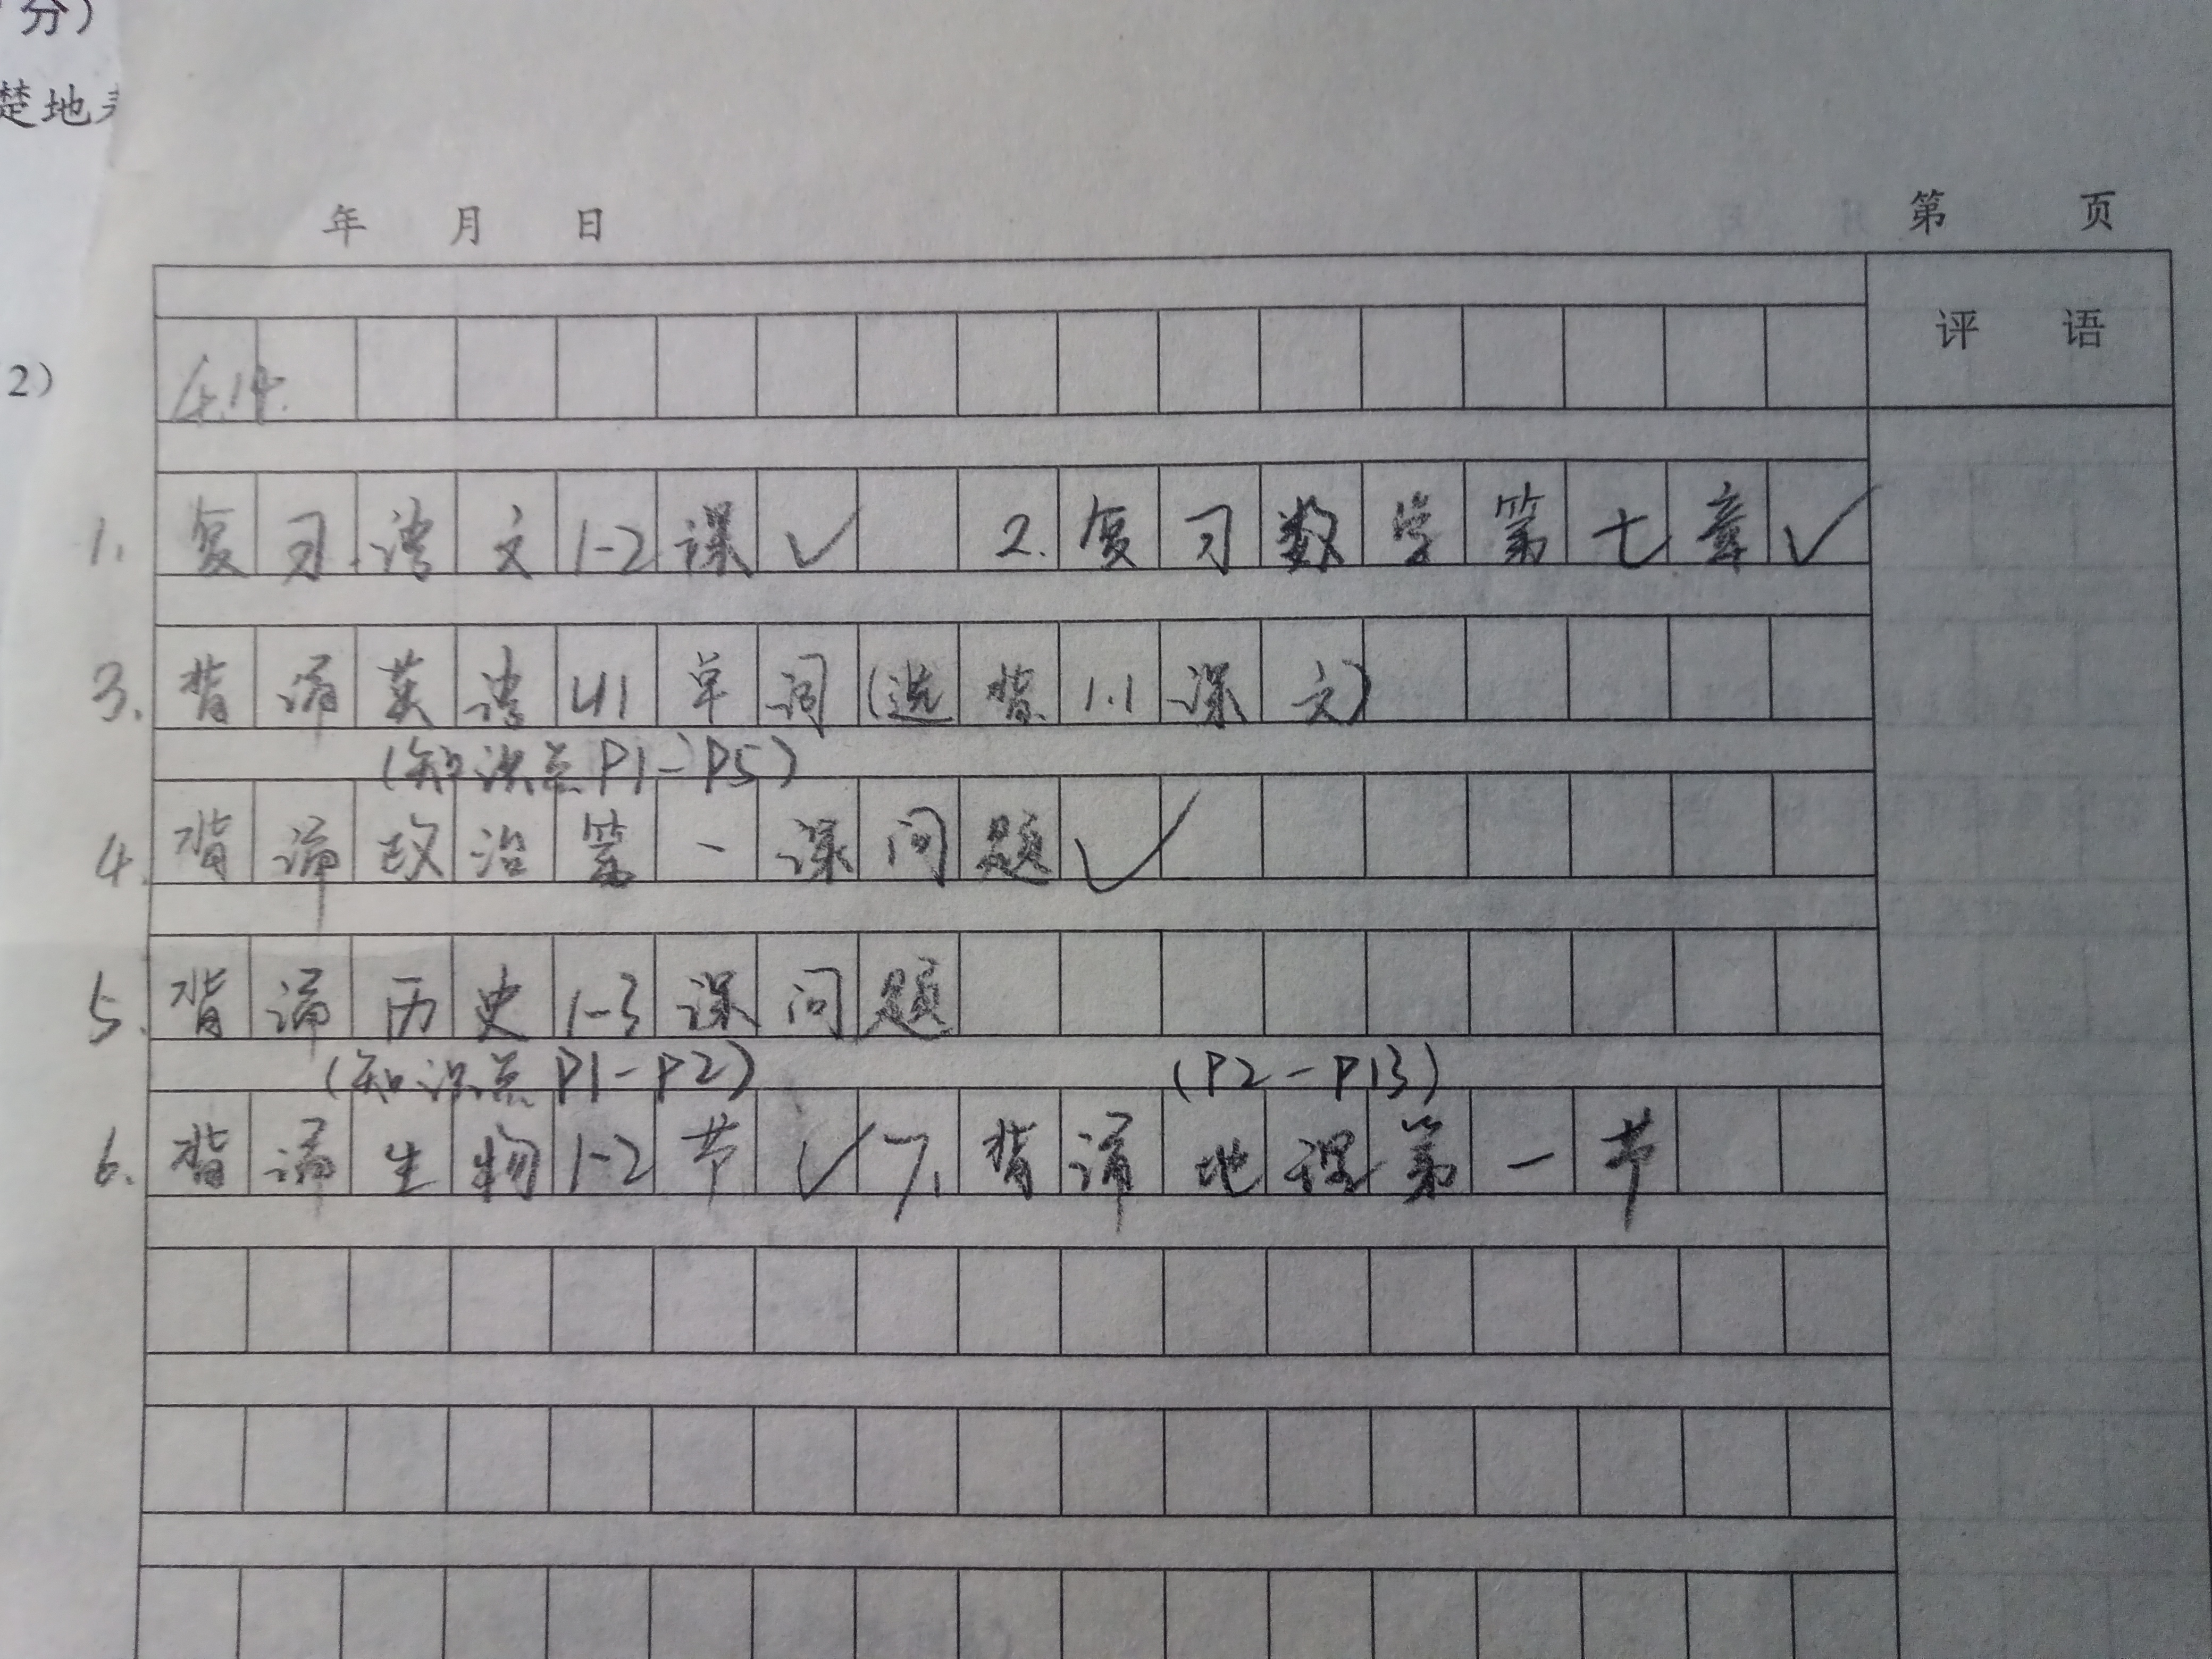 分）
楚地
2）
年 月 日 第 页
评 语
4.14.
1. 复习语文1-2课✓ 2. 复习数学第七章✓
3. 背诵英语U1单词(选背1.1课文)
(知识点P1-P5)
4. 背诵政治第一课问题✓
5. 背诵历史1-3课问题
(知识点P1-P2) (P2-P13)
6. 背诵生物1-2节✓ 7. 背诵地理第一节